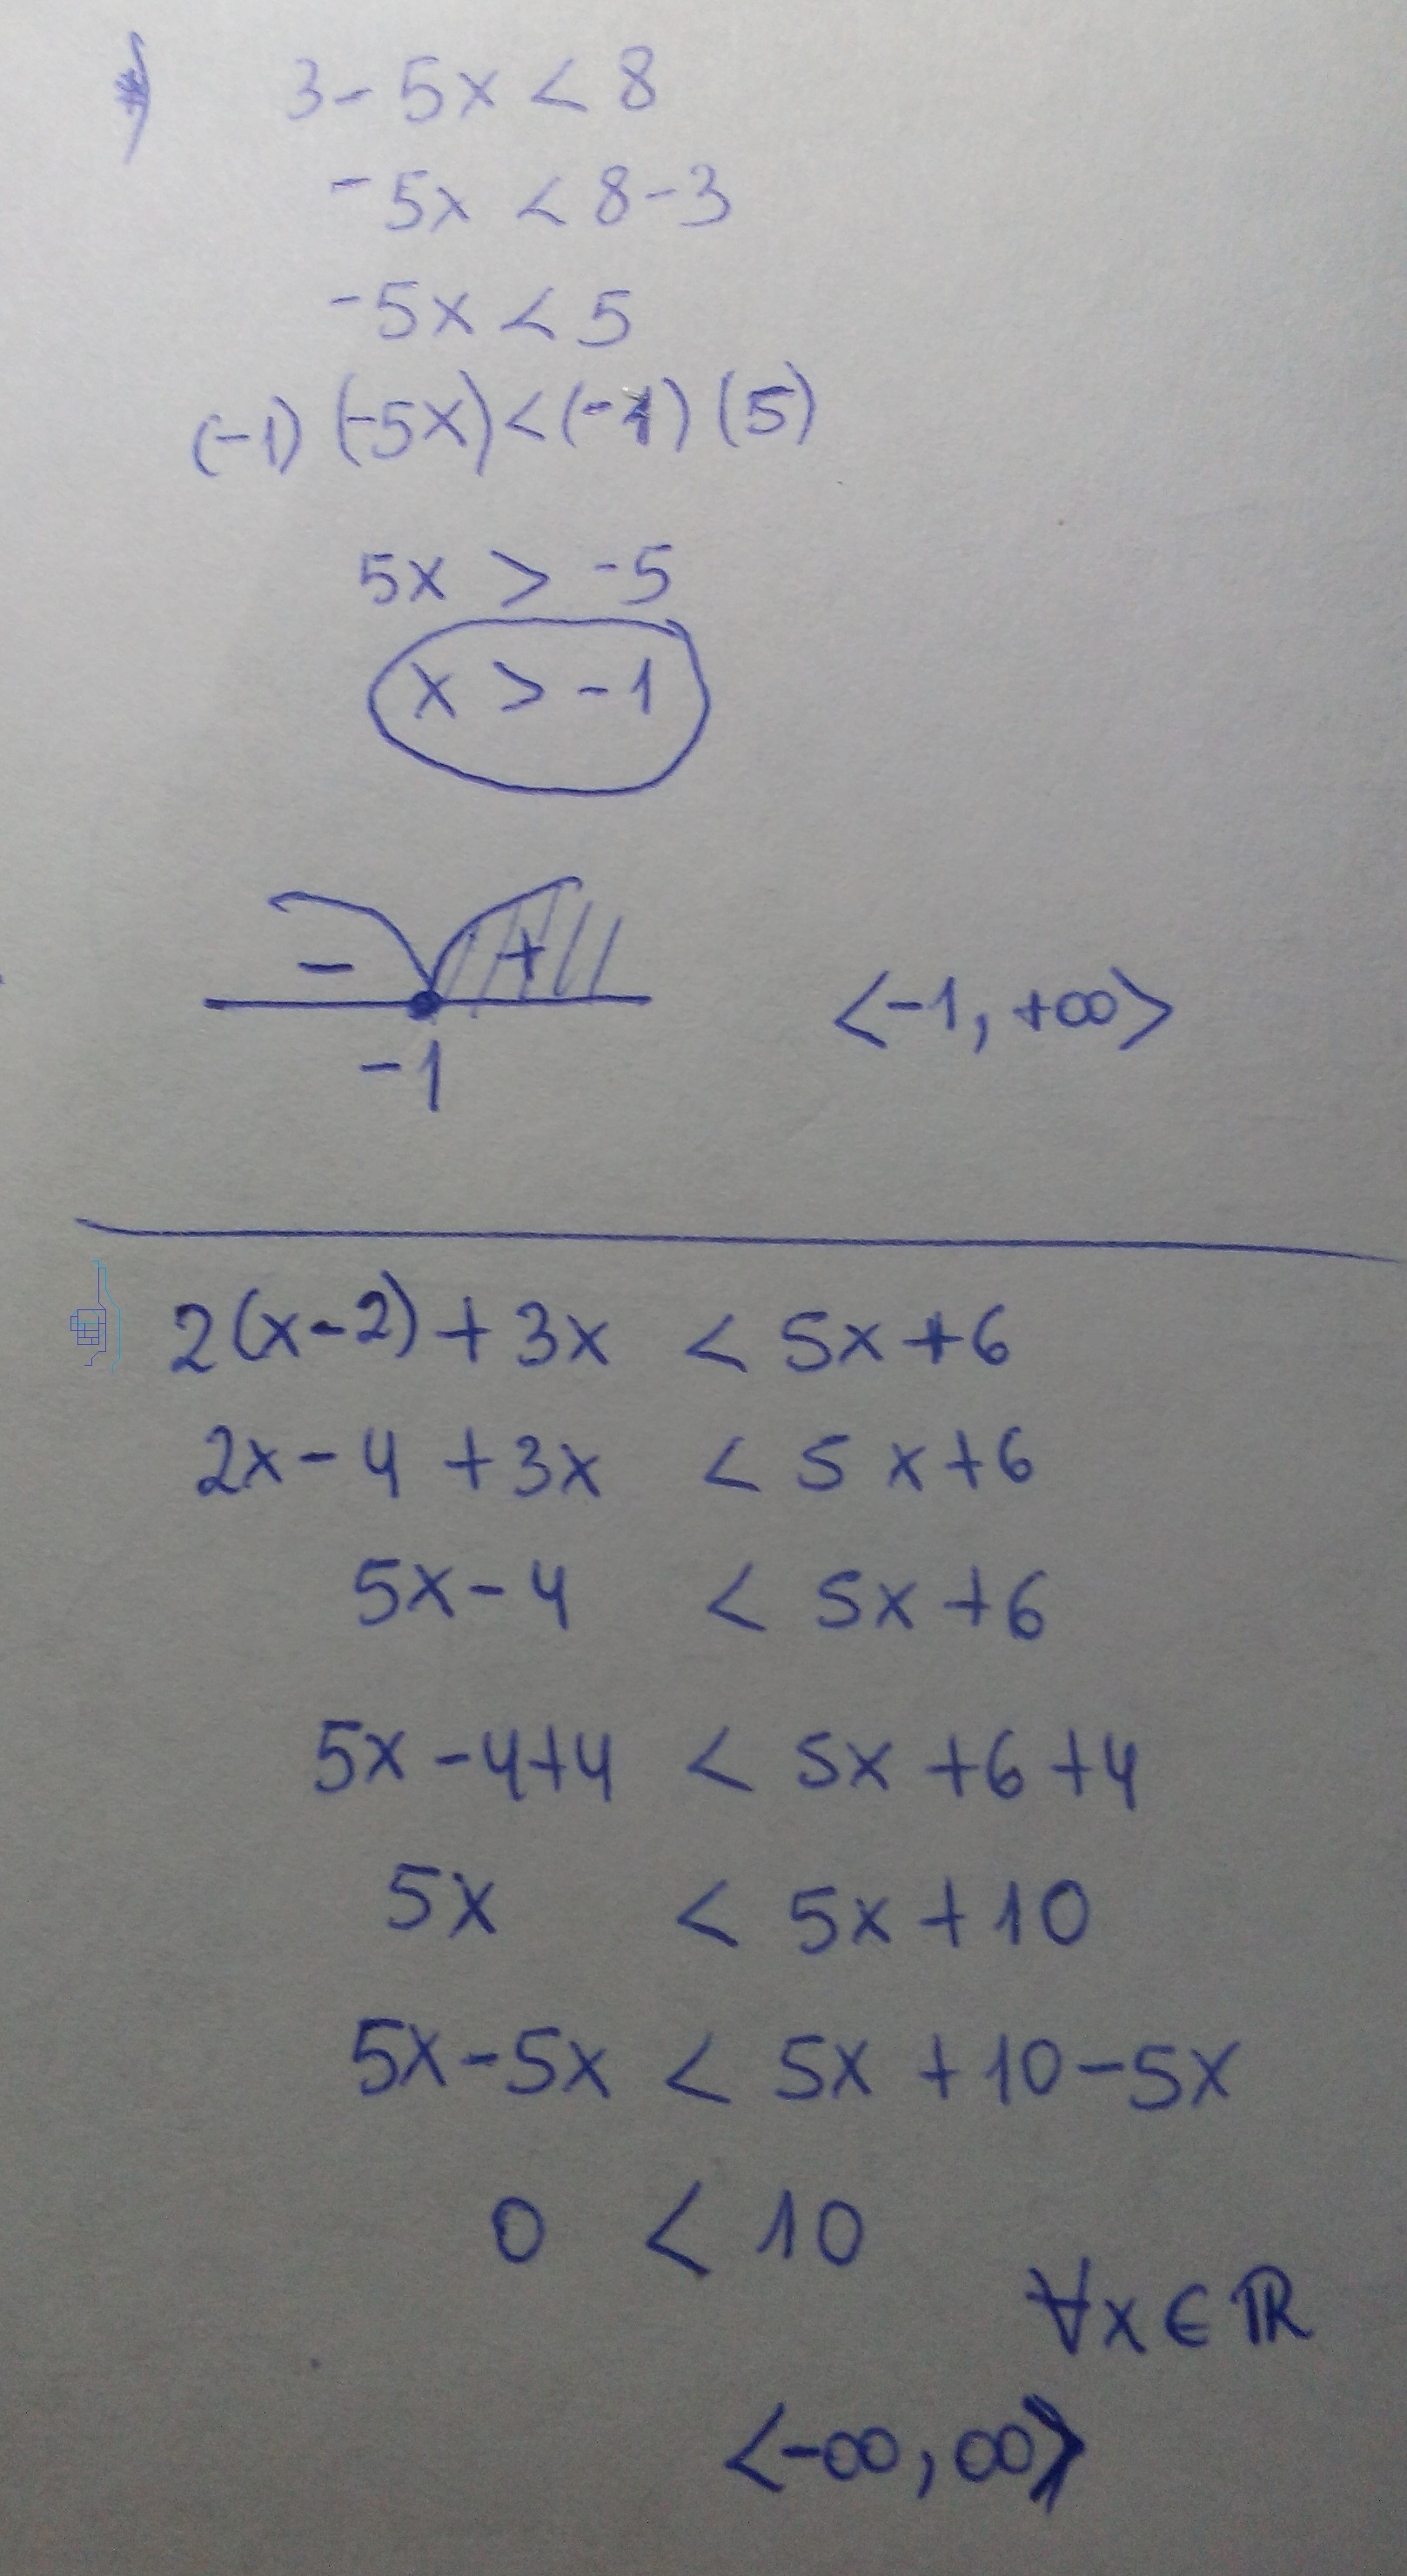 3 - 5x < 8
-5x < 8 - 3
-5x < 5
(-1) (-5x) < (-1) (5)
5x > -5
x > -1
- +
-1
<-1, +∞>
2(x-2) + 3x < 5x + 6
2x - 4 + 3x < 5x + 6
5x - 4 < 5x + 6
5x - 4 + 4 < 5x + 6 + 4
5x < 5x + 10
5x - 5x < 5x + 10 - 5x
0 < 10
∀x ∈ ℝ
<-∞, ∞>